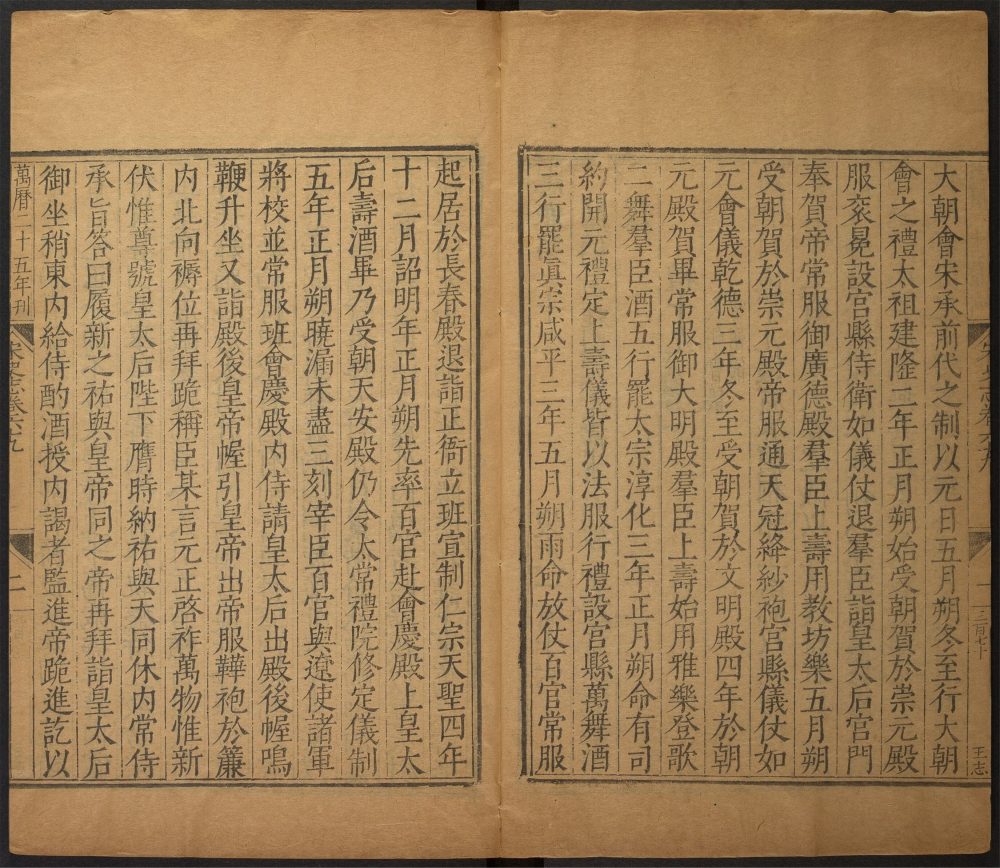 大朝會宋承前代之制以元日五月朔冬至行大朝
會之禮太祖建隆二年正月朔始受朝賀於崇元殿
服衮冕設宮縣仗衛如儀仗退羣臣詣皇太后宮門
奉賀帝常服御廣德殿羣臣上壽用教坊樂五月朔
受朝賀於崇元殿帝服通天冠絳紗袍宮縣儀仗如
元會儀乾德三年冬至受朝賀於文明殿四年於朝
元殿賀畢常服御大明殿羣臣上壽始用雅樂登歌
二舞羣臣酒五行罷太宗淳化三年正月朔命有司
約開元禮定上壽儀皆以法服行禮設宮縣萬舞酒
三行罷眞宗咸平三年五月朔雨命放仗百官常服
起居於長春殿退詣正衙立班宣制仁宗天聖四年
十二月詔明年正月朔先率百官赴會慶殿上皇太
后壽酒畢乃受朝天安殿仍令太常禮院修定儀制
五年正月朔曉漏未盡三刻宰臣百官與遼使諸軍
將校並常服班會慶殿內侍請皇太后出殿後幄鳴
鞭升坐又詣殿後皇帝幄引皇帝出帝服鞾袍於簾
內北向褥位再拜跪稱臣某言元正啓祚萬物惟新
伏惟尊號皇太后陛下膺時納祐與天同休內常侍
承旨答曰履新之祐與皇帝同之帝再拜詣皇太后
御坐稍東內給侍酌酒授內謁者監進帝跪進訖以
萬曆二十五年刊
宋史志卷六九
二
王志